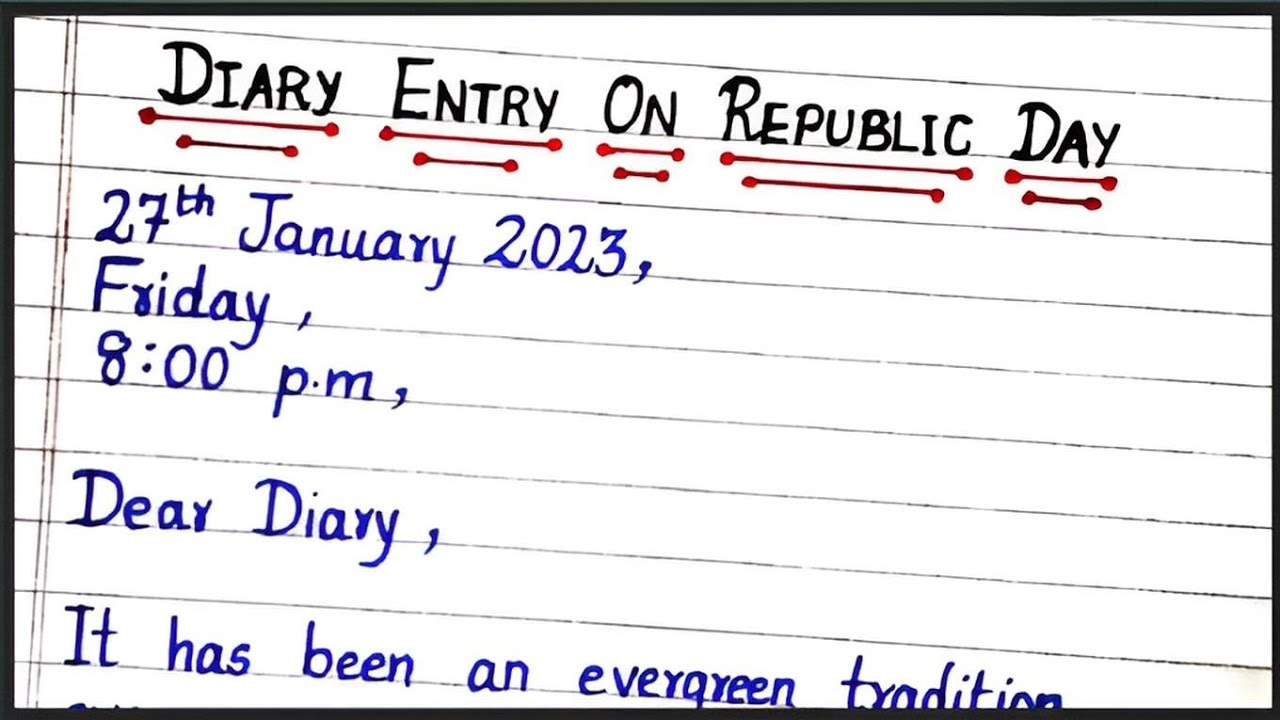 DIARY ENTRY ON REPUBLIC DAY
27th January 2023,
Friday,
8:00 p.m,
Dear Diary,
It has been an evergreen tradition